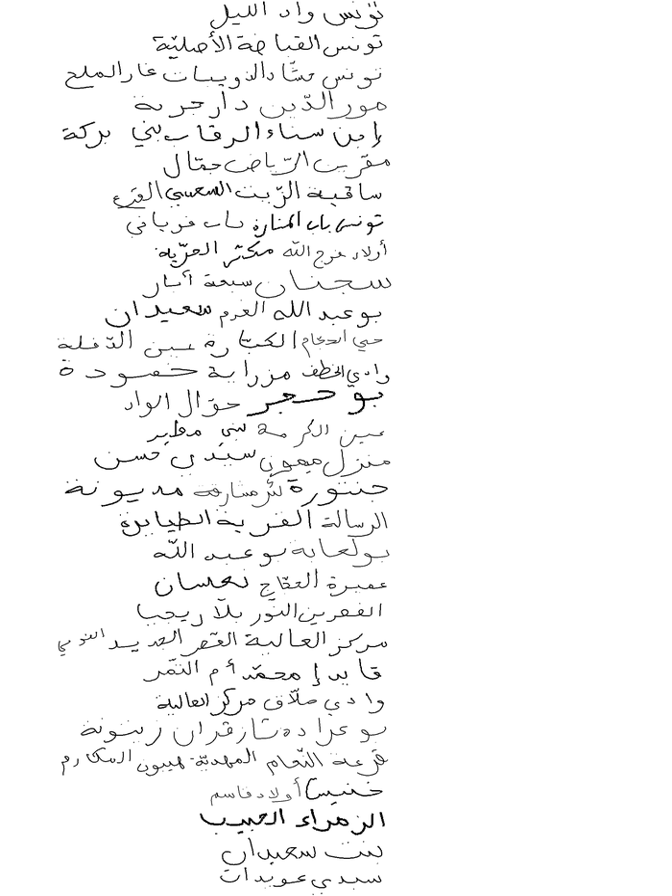 تونس واد الليل
تونس القباضة الأصليّة
تونس حشّاد الذويبات غار الملح
مور الدّين دار حرية
إبن سناء الرقاب بني بركة
مقرين الرّياض جمّال
ساقية الزّيت السعيبي القرع
تونس باب المنارة باب فرياني
أولاد فرج الله مكثر الحرّية
سجنان سبعة أبار
بوعبد الله القرم سعيدان
حي الحجام الكبّارة عين الدّفلة
وادي الخطف مزراية حمودة
بوحجر حوّال الواد
عين الكرمة بني مطير
منزل ميمون سيدي حسن
جنتورة بئر مشارقة مديونة
الرسالة القرية الطيايرة
بولعابة بوعبد الله
عميرة الحجّاج نعسان
القعرين النّور بلاّريجيا
مركز العالية القصر الجديد
قايد إمحمّد أم التّمر
وادي ملاّق مركز العالية
بوعرادة شازقران زيتونة
قرعة النّعام المهديّة هيبون المكارم
خنيس أولاد قاسم
الزهراء الحبيب
بنت سعيدان
سيدي عويدات